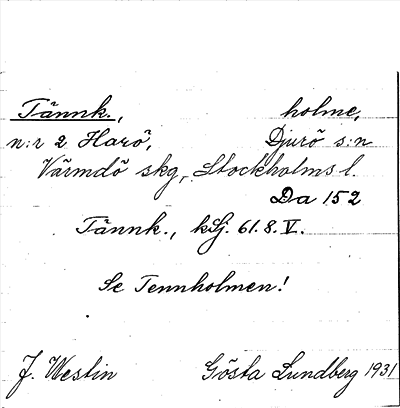 Tännk., holme,
n:r 2 Harö, Djurö s:n
Värmdö skg, Stockholms l.
Da 152
Tännk., kLj. 61.8.V.
Se Tennholmen!
J. Westin Gösta Lundberg 1931